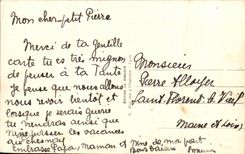 Mon cher petit Pierre
Merci de ta gentille
carte tu es très mignon
de penser à ta Tante
je pense que nous allons
nous revoir bientôt et
lorsque je serais guérie
tu viendras ainsi que
passer les vacances
au chesnay
Embrasse Papa, maman et
Monsieur
Pierre
Saint Florent le Vieil
Maine et Loire
de ma part
bons baisers